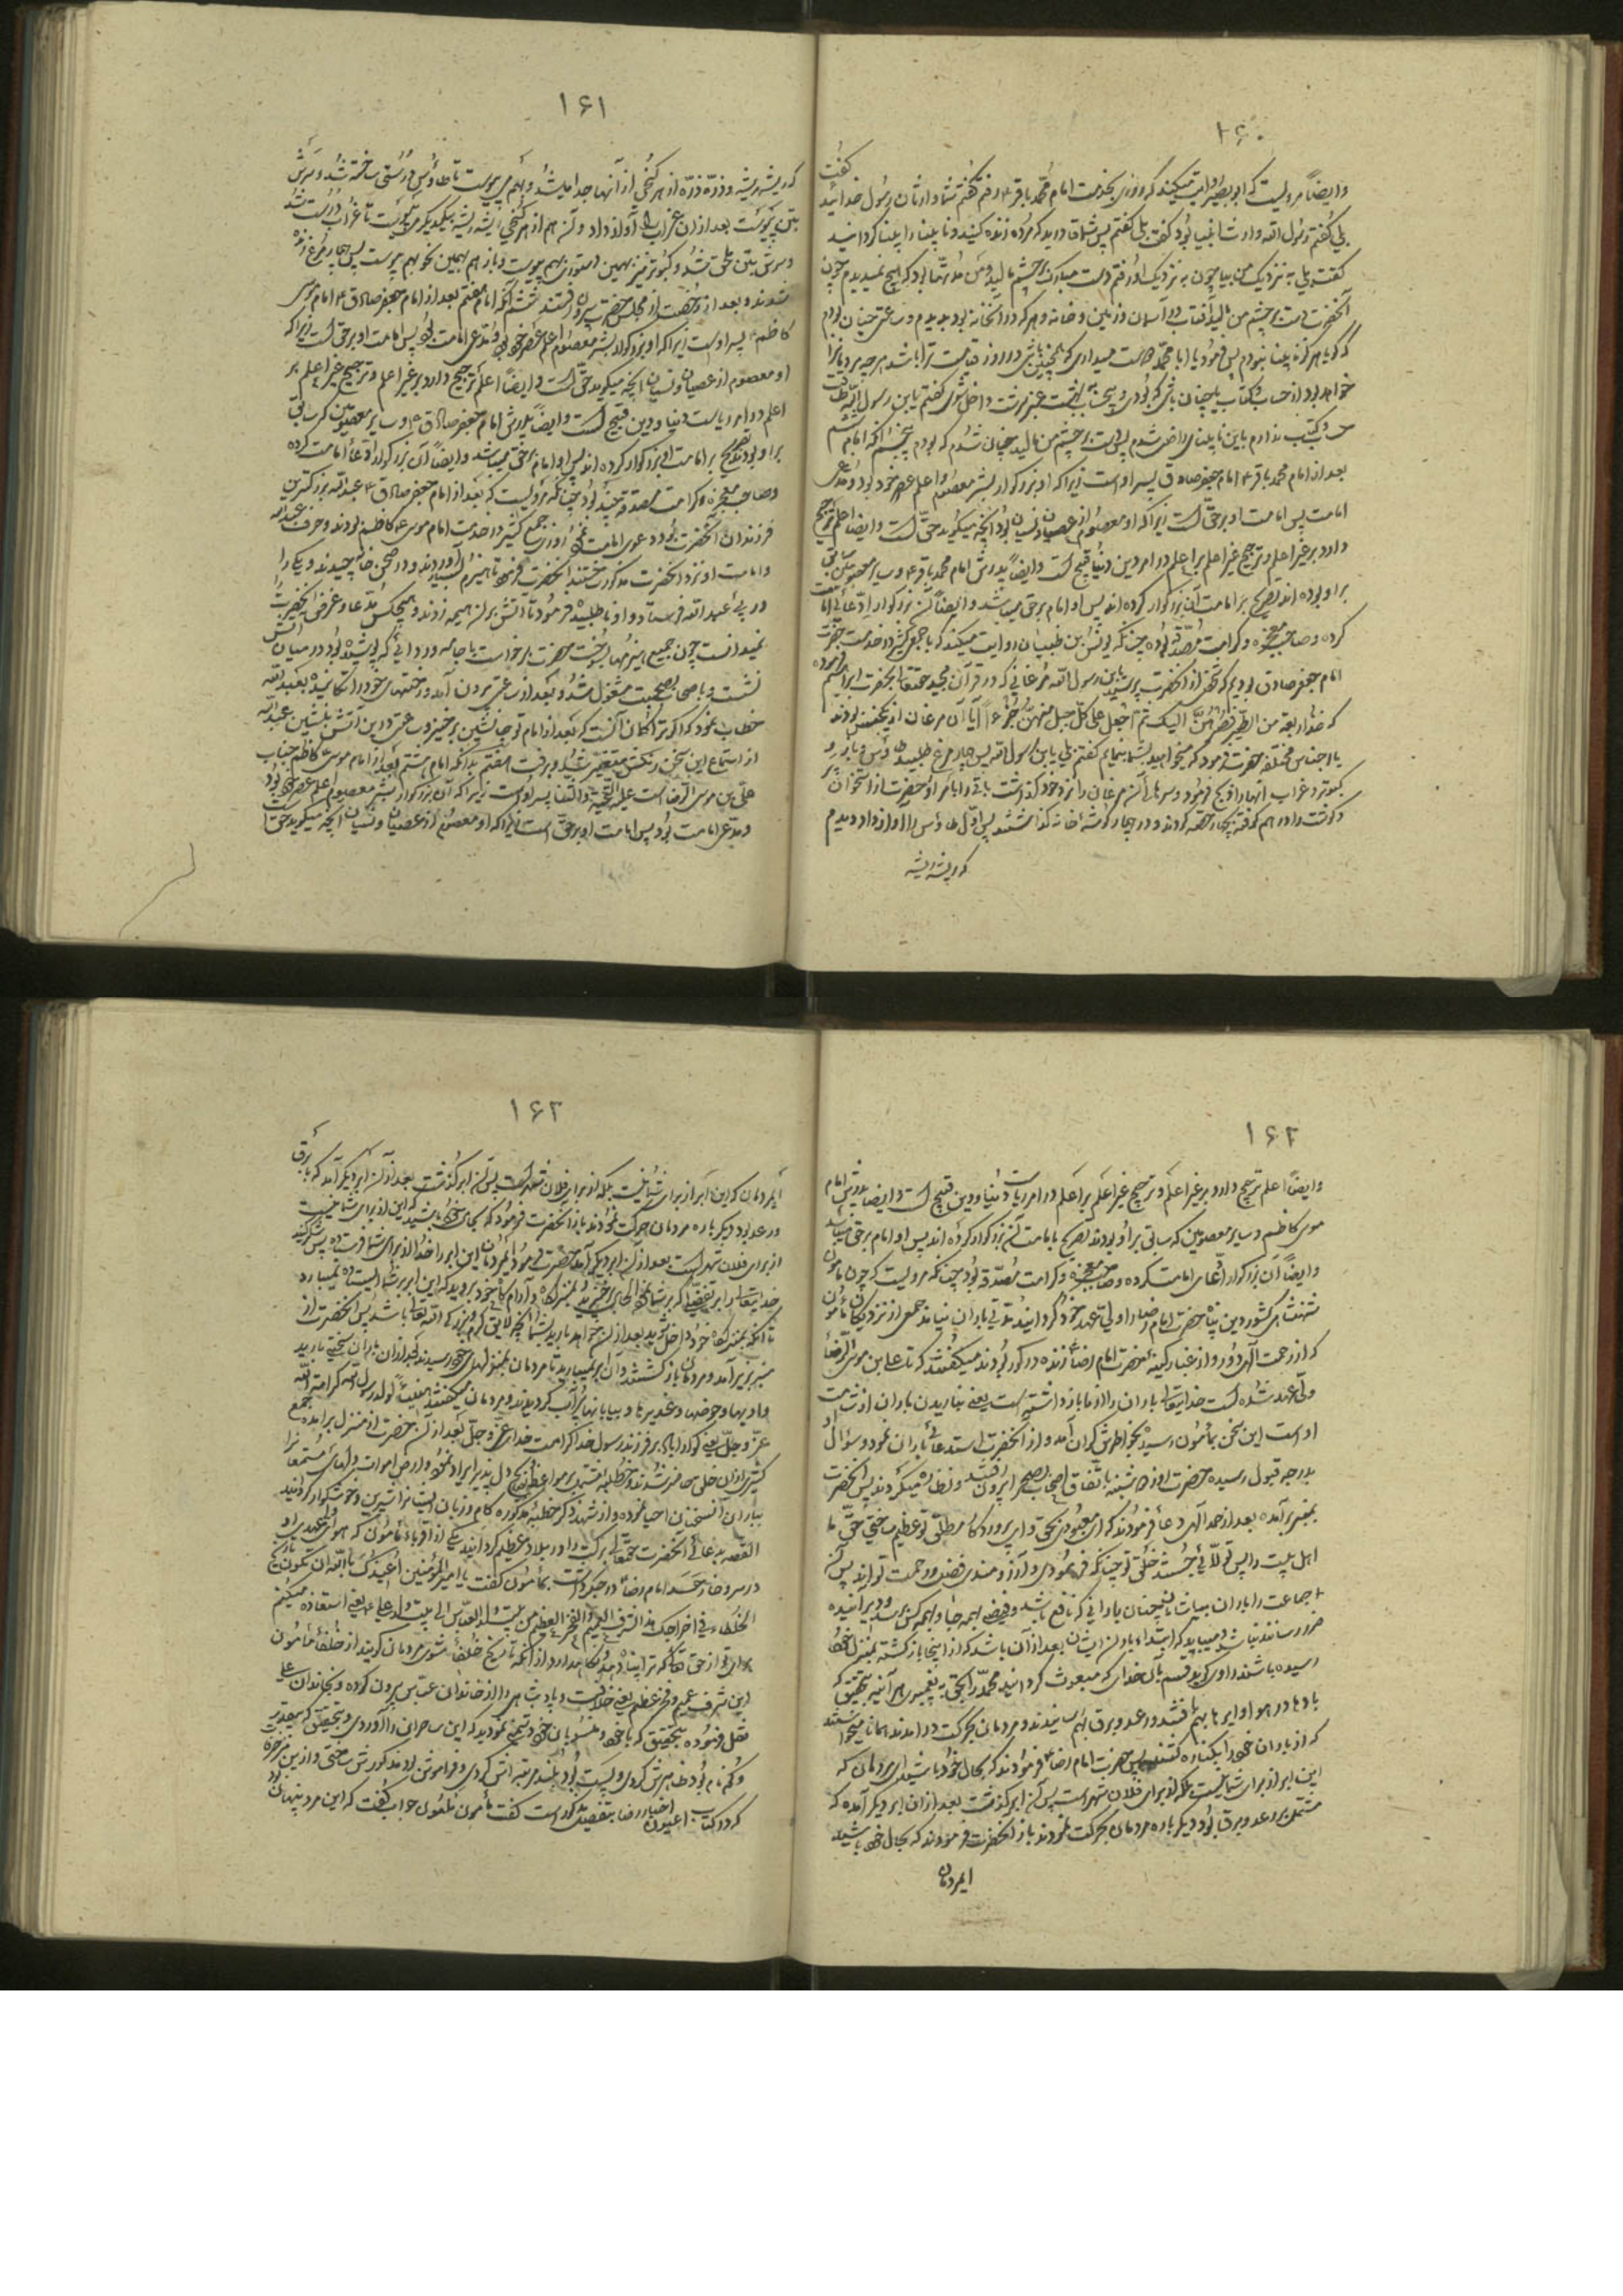 ۱۶۰
گفت
وایضاً مرویست که ابو بصیر روایت میکند که روزی بخدمت امام محمد باقر ۴ رفتم گفتم شما وارثان رسول خدائید
بلی گفتم رسول الله وارث انبیا بود گفت بلی گفتم پس شما قادرید که مرده زنده کنید و نابینا را بینا گردانید
گفت بلی نزدیک من بیا چون به نزدیک او رفتم دست مبارک بر چشم مالید و من مدتها بود که هیچ نمیدیدم چون
آنحضرت دست بر چشم من مالید آفتاب و آسمان و زمین و خانه و هر که در آنخانه بود بدیدم و ساعتی چنان بودم
که گویا هرگز نابینا نبودم پس فرمود یا ابا محمد میداری که همچنین باشی و در روز قیامت ترا باشد هرچه مردمانرا
خواهد بود از حساب و کتاب یا چنان باشی که بودی و بیحساب بهشت داخل شوی گفتم یابن رسول الله طاقت
حساب و کتاب ندارم باین نابینائی راضی شدم پس دست بر چشم من مالید چنان شدم که بودم پنجم آنکه امام ششم
بعد از امام محمد باقر ۴ امام جعفر صادق پسر اوست زیرا که او بزرگوار بشر معصوم و اعلم عصر خود بود و مدعی
امامت پس امامت او بر حق است زیرا که او معصوم از عصیان و نسیان بود آنچه میگوید حق است وایضا اعلم ترجیح
دارد بر غیر اعلم و ترجیح غیر اعلم بر اعلم در امر دین و دنیا قبیح است وایضاً پدرش امام محمد باقر ۴ و سایر معصومین سابق
بر او بوده اند تصریح بر امامت آن بزرگوار کرده اند پس او امام بر حق میباشد وایضاً آن بزرگوار ادعای امامت
کرده و صاحب معجزه و کرامت مصدقه بوده چنانکه یونس بن ظبیان روایت میکند که با جمع کثیر در خدمت حضرت
امام جعفر صادق بودیم که شخصی از آنحضرت پرسید یابن رسول الله مرغانی که در قرآن مجید حقتعالی بحضرت ابراهیم فرموده
که خذ اربعة من الطیر فصرهن الیک ثم اجعل علی کل جبل منهن جزءاً آیا آن مرغان از یکجنس بودند
یا اجناس مختلفه حضرت فرمود که میخواهید بشما بنمایم گفتم بلی یابن رسول الله پس چهار مرغ طلبید طاوس و باز و
کبوتر و غراب آنها را ذبح فرمود و سرهای آن مرغان را نزد خود گذاشت باقی را بامر او حضرت از استخوان و پر
و گوشت را در هم کوفته بچهار حصه کردند و در چهار گوشه خانه گذاشتند پس اول طاوس را آواز داد دیدم
که ریشه ریشه
۱۶۱
که ریشه ریشه و ذره ذره از هر کنجی از آنها جدا میشد و بهم می پیوست تا طاوس درستی ساخته شد و سرش
بتن پیوست بعد از آن غراب را آواز داد و آن هم از هر کنجی ریشه ریشه بیکدیگر می پیوست تا غراب درست شد
و سرش بتن ملحق شد و کبوتر نیز بهمین دستور بهم پیوست و باز هم بهمین نحو بهم پیوست پس چهار مرغ زنده
شدند و بعد از رخصت از مجلس حضرت بیرون رفتند ششم آنکه امام هفتم بعد از امام جعفر صادق ۴ امام موسی
کاظم ۴ پسر اوست زیرا که او بزرگوار بشر معصوم و اعلم عصر خود بود و مدعی امامت بود پس امامت او بر حق است زیرا که
او معصوم از عصیان و نسیان آنچه میگوید حق است وایضاً اعلم ترجیح دارد بر غیر اعلم و ترجیح غیر اعلم بر
اعلم در امر ریاست دنیا و دین قبیح است وایضاً پدرش امام جعفر صادق ۴ و سایر معصومین که سابق
بر او بودند تصریح بر امامت آن بزرگوار کرده اند پس او امام بر حق میباشد وایضاً آن بزرگوار ادعای امامت کرده
و صاحب معجزه و کرامت مصدقه بود چنانکه مرویست که بعد از امام جعفر صادق ۴ عبدالله بزرگترین
فرزندان آنحضرت بود دعوی امامت نمود روزی جمع کثیر در خدمت امام موسی کاظم بودند و حرف عبدالله
و امامت او نزد آنحضرت مذکور ساختند آنحضرت فرمود تا هیزم بسیار آوردند و در صحن خانه چیدند و یکی را
در پی عبدالله فرستاد و او را طلبید فرمود تا آتش بر آن هیمه زدند و هیچکس مدعا و غرض آنحضرت را
نمیدانست چون جمیع هیزمها بسوخت حضرت برخواست با جامه و ردائی که پوشیده بود در میان آتش
نشست و با اصحاب بصحبت مشغول شد و بعد از ساعتی برون آمد و رختهای خود را تکانیده بعبدالله
خطاب نمود که اگر ترا گمان آنست که بعد از امام تو جانشین بر خیز و ساعتی در این آتش بنشین عبدالله
از استماع این سخن رنگش متغیر شد و برفت هفتم بدانکه امام هشتم بعد از امام موسی کاظم جناب
علی بن موسی الرضا است علیه التحیة والثنا پسر اوست زیرا که آن بزرگوار بشر معصوم و اعلم عصر خود بود
و مدعی امامت بود پس امامت او بر حق است زیرا که او معصوم از عصیان و نسیان آنچه میگوید حق است
۱۶۲
وایضاً اعلم ترجیح دارد بر غیر اعلم و ترجیح غیر اعلم بر اعلم در امر ریاست دنیا و دین قبیح است وایضاً پدرش امام
موسی کاظم و سایر معصومین که سابق بر او بودند تصریح بامامت آن بزرگوار کرده اند پس او امام بر حق میباشد
وایضاً آن بزرگوار ادعای امامت کرده و صاحب معجزه و کرامت مصدقه بود چنانکه مرویست که چون مامون
شهنشاه کشور دین پناه حضرت امام رضا را ولی عهد خود گردانید مدتی باران نیامد جمعی از نزدیکان مامون
که از رحمت الهی دور و از غبار کینه حضرت امام رضا زنده در گور بودند میگفتند که تا علی ابن موسی الرضا
ولی عهد شده است خدایتعالی باران را از ما باز داشته است یعنی نباریدن باران از شامت
اوست این سخن بمأمون رسید بخاطرش گران آمد و از آنحضرت استدعای باران نمود و سؤال او
بدرجه قبول رسیده حضرت روز دوشنبه باتفاق اصحاب بصحرا بیرون رفتند و نظاره میکردند پس آنحضرت
بمنبر بر آمده بعد از حمد الهی دعا فرمودند که ای معبود بحق و ای پروردگار مطلق تو عظیم ساختی حق ما
اهل بیت را پس توسل جستند خلق تو چنانکه فرمودی و آرزومند فضل و رحمت تو اند پس این
جماعت را باران بیاشامان چنان بارانی که نافع باشد و فیض بهمه جا و بهمه کس برسد و دیر آینده
ضرر رساننده نباشد و میباید که ابتدای باران ایشان بعد از آن باشد که از اینجا بازگشته بمنزل خود
رسیده باشند راوی گوید قسم بآن خدای که مبعوث گردانید محمد را بحق به پیغمبری هر آینه بتحقیق که
بادها در هوا و ابرها بهم بافتند و رعد و برق بهم رسانیدند و مردمان بحرکت در آمدند همانا میخواستند
که از باران خود را بکناره کشند پس حضرت امام رضا ۴ فرمودند که بحال خود باشید ای مردمان که
این ابر از برای شما نیست بلکه از برای فلان شهر است پس آن ابر گذشت بعد از آن ابر دیگر آمده که
مشتمل بر رعد و برق بود دیگر باره مردمان بحرکت نمودند باز آنحضرت فرمودند که بحال خود باشید
ایمردمان
۱۶۲
ایمردمان که این ابر از برای شما نیست بلکه از برای فلان شهر است پس آن ابر گذشت بعد از آن ابر دیگر آمد که با برق
و رعد بود دیگر باره مردمان حرکت نمودند باز آنحضرت فرمود که بجای خود باشید که این از برای شما نیست
از برای فلان شهر است بعد از آن ابر دیگر آمد حضرت فرمود ایمردمان این ابر را خدا از برای شما فرستاده پس شکر کنید
خدایتعالی را بر تفضلی که بر شما نمود الحال برخیزید و بمنزلگاه و آرام گاه خود بروید که این ابر بر شما ایستاده نمیبارد
تا آنکه بمنزلگاه خود داخل شوید بعد از آن خواهد بارید بشما آنچه لایق کرم و بزرگی الله تعالی باشد پس آنحضرت از
منبر بزیر آمد و مردمان باز گشتند و آن ابر نمیبارید تا مردمان بمنزلهای خود رسیدند بعد از آن باران سختی بارید
و ادیها و حوضها و غدیرها و بیابانها پر آب گردیدند و مردمان میگفتند هنیئاً لولد رسول الله کرامة الله
عز وجل یعنی گوارا باد بر فرزند رسول خدا کرامت خدای عز وجل بعد از آن حضرت از منزل برآمده جمع
کثیری از آن خلق حاضر شدند و خطبه مشتمل بر مواعظ دل پذیر ایراد نمود و اراضی اموات دلهای مستمعانرا
بباران آن سخنان احیا نموده و از شهد ذکر خطبه مذکوره کام و زبان را شیرین و خوشگوار گردانید
القصه بدعای آنحضرت حقتعالی برکت را در بلاد عظیم گردانید یکی از اقربای مأمون که هوای ولیعهدی او
در سر و خار حسد امام رضا در جگر داشت بمأمون گفت یا امیرالمؤمنین اعیذک باالله ان تکون تاریخ
الخلفاء فی اخراجک هذا الشرف العمیم والفخر العظیم من بیت ولد العباس الی بیت ولد علی یعنی استعاذه میکنم
برای تو از حق تعالی که ترا پناه دهد و نگاهدارد از آنکه تاریخ خلفا شوی مردمان گویند از خلفا مامون
این شرف عمیم و فخر عظیم یعنی خلافت و پادشاهی را از خاندان عباس بیرون کرده و بخاندان علی
نقل فرموده بتحقیق که با خود و منسوبان خود دشمنی نمودید که این ساحر را آوردی و بتحقیق که بیقدر
و گمنام بود ظاهرش کردی و پست بود بلند مرتبه اش کردی و فراموش بود مذکورش ساختی و از این زمره
که در کتاب عیون اخبار رضا بتفصیل مذکور است گفت مأمون ملعون جواب گفت که این مرد پنهان بود